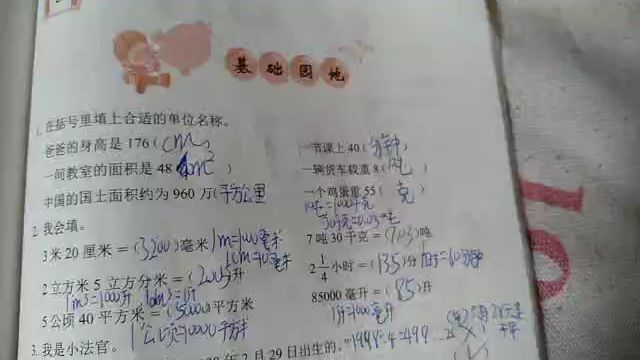 基础园地
1.在括号里填上合适的单位名称。
爸爸的身高是176(cm) 一节课上40(分钟)
一间教室的面积是48(m²) 一辆货车载重8(吨)
中国的国土面积约为960万(平方公里 一个鸡蛋重55(克)
1吨=1000千克
30千克=0.03吨
2.我会填。
3米20厘米=(3200)毫米 7吨30千克=(7.03)吨
1m=1000毫米
1cm=10毫米
2立方米5立方分米=(2005)升 2 1/4小时=(135)分 1时=60分钟
1m³=1000升 1dm³=1升 85000毫升=(85)升
5公顷40平方米=(50040)平方米 1升=1000毫升
1公顷=10000平方米
3.我是小法官。
年2月29日出生的。"1999÷4=499